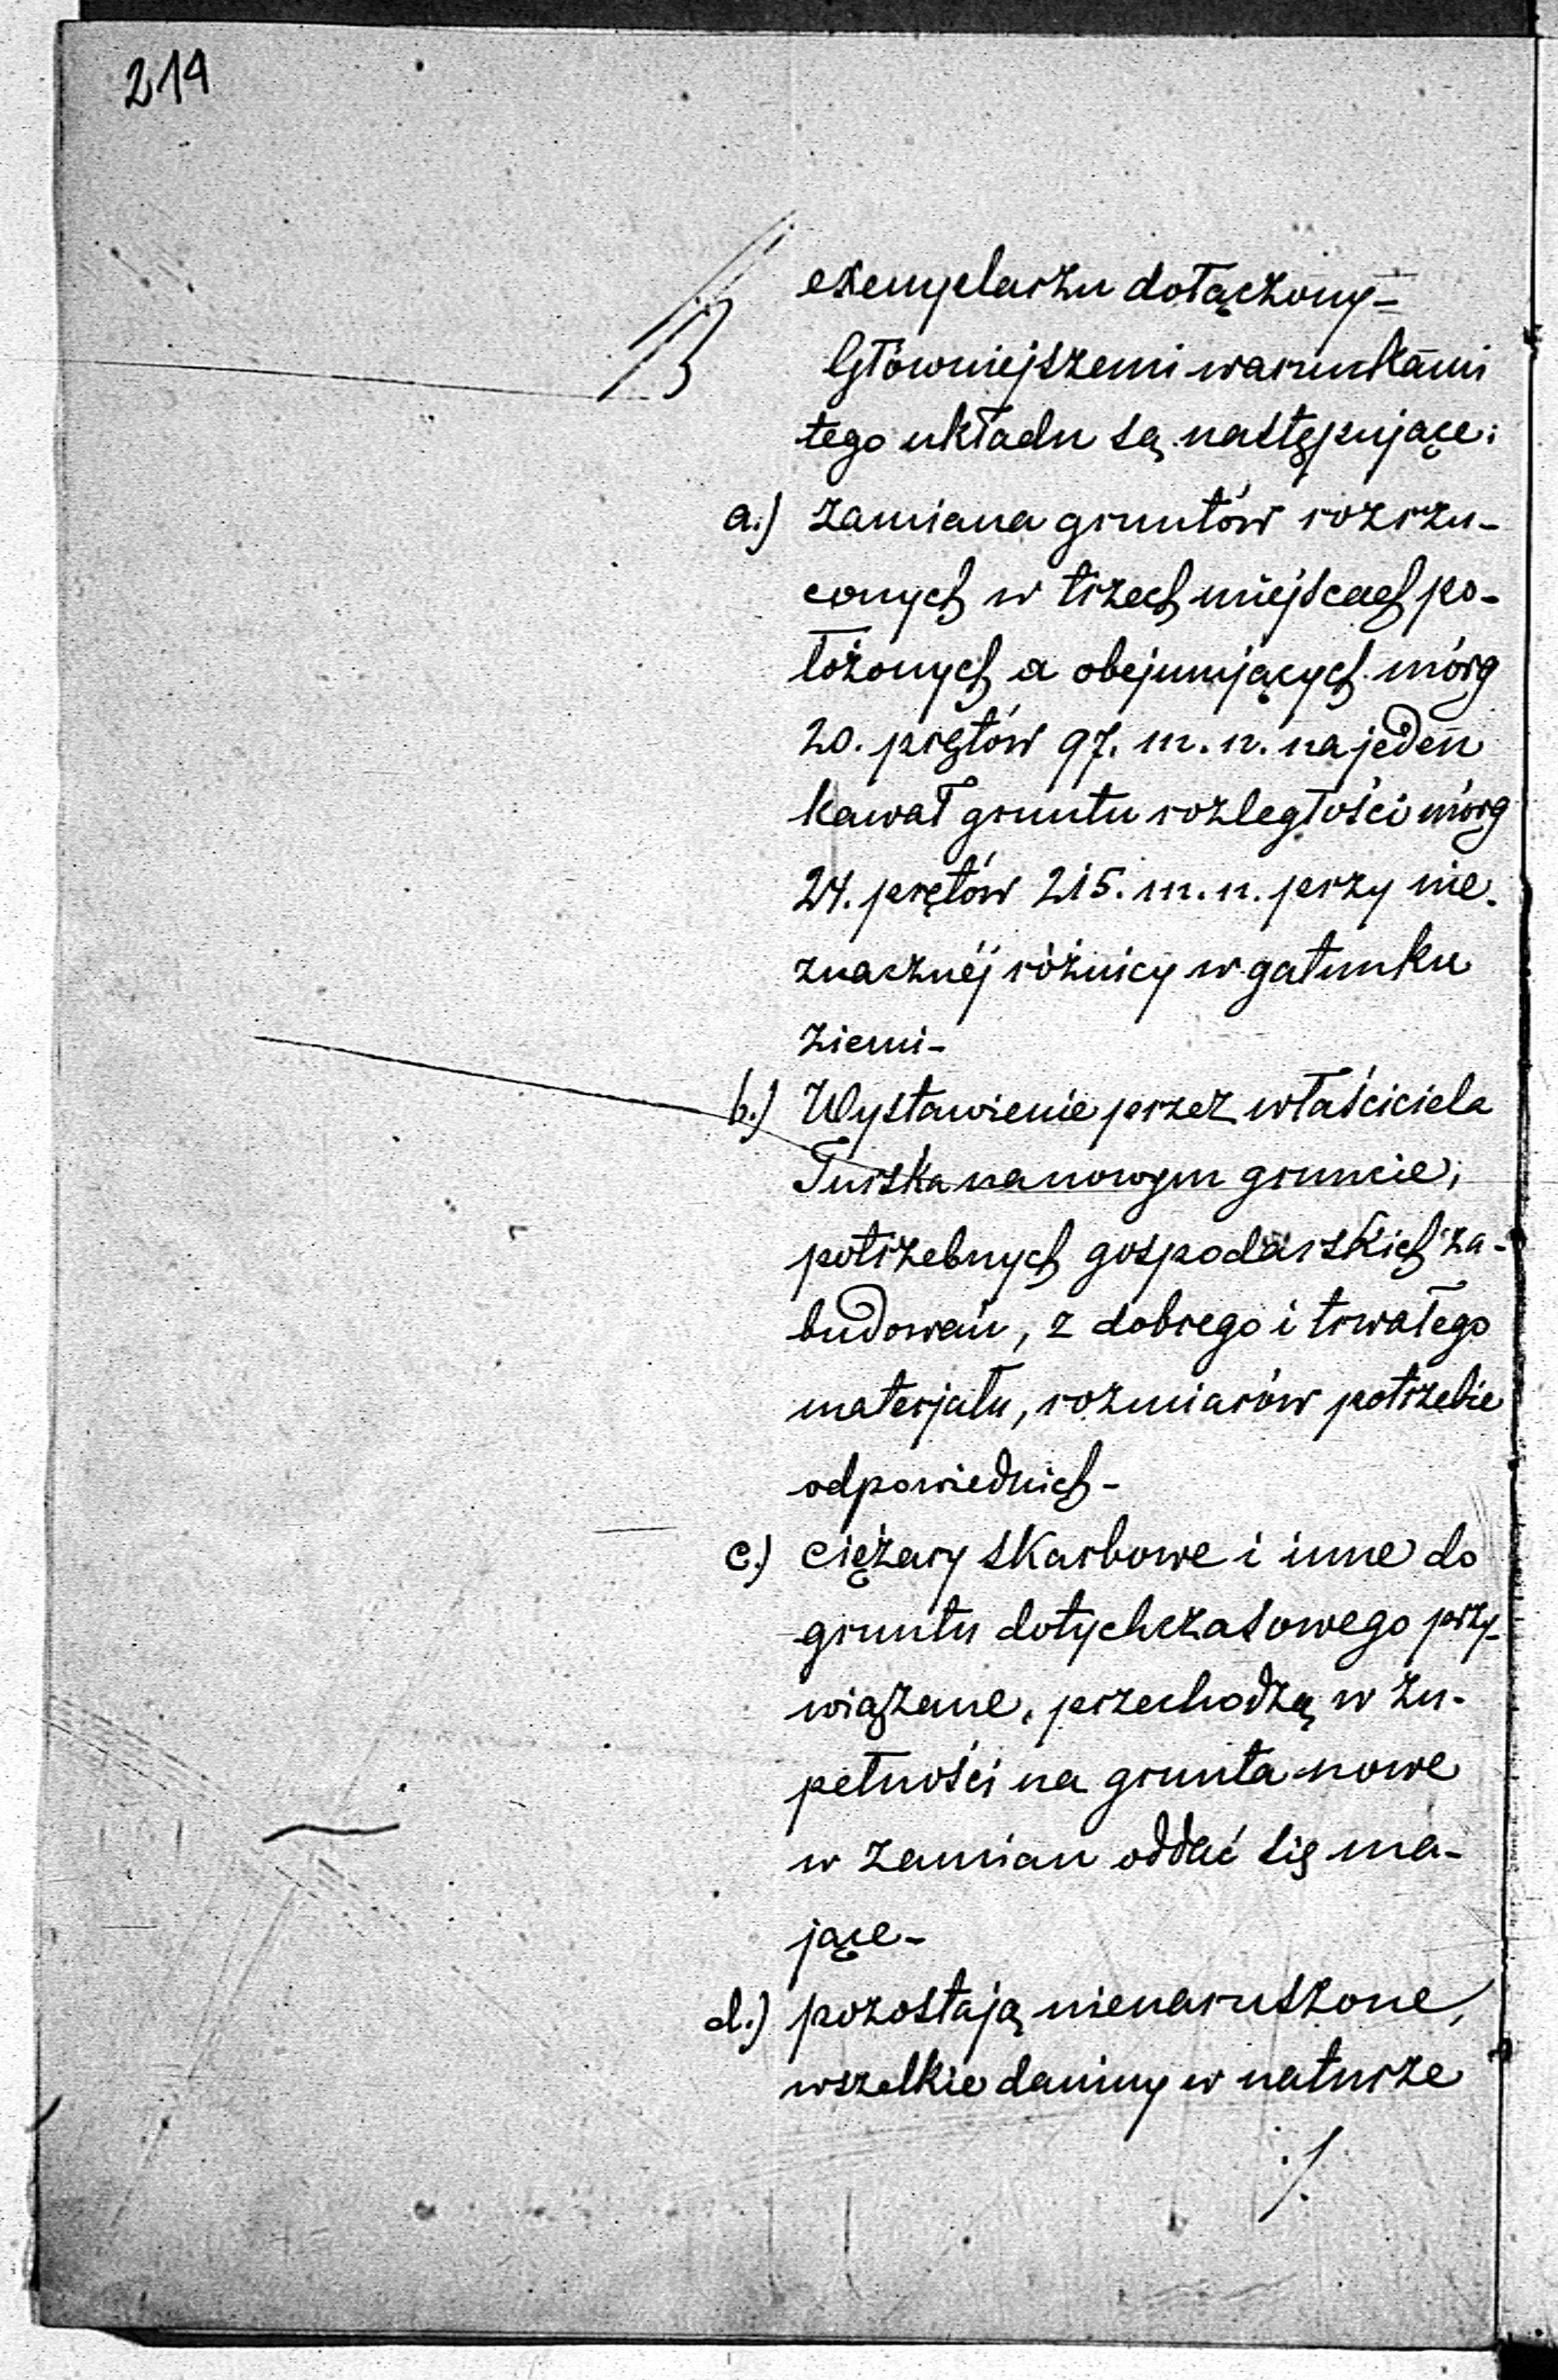 214
exemplarzu dołączony –
Główniejszemi warunkami
tego układu są następujące:
a.) zamiana gruntów rozrzu-
conych w trzech miejscach po-
łożonych a obejmujących mórg
20. prętów 97. m. n. na jeden
kawał gruntu rozległości mórg
24. prętów 215. m. n. przy nie-
znacznéj różnicy w gatunku
ziemi –
b.) Wystawienie przez właściciela
Turska na nowym gruncie,
potrzebnych gospodarskich za-
budowań, z dobrego i trwałego
materjału, rozmiarów potrzebie
odpowiednich –
c.) ciężary skarbowe i inne do
gruntu dotychczasowego przy-
wiązane, przechodzą w zu-
pełności na grunta nowe
w zamian oddać się ma-
jące –
d.) pozostają nienaruszone,
wszelkie daniny w naturze
./.